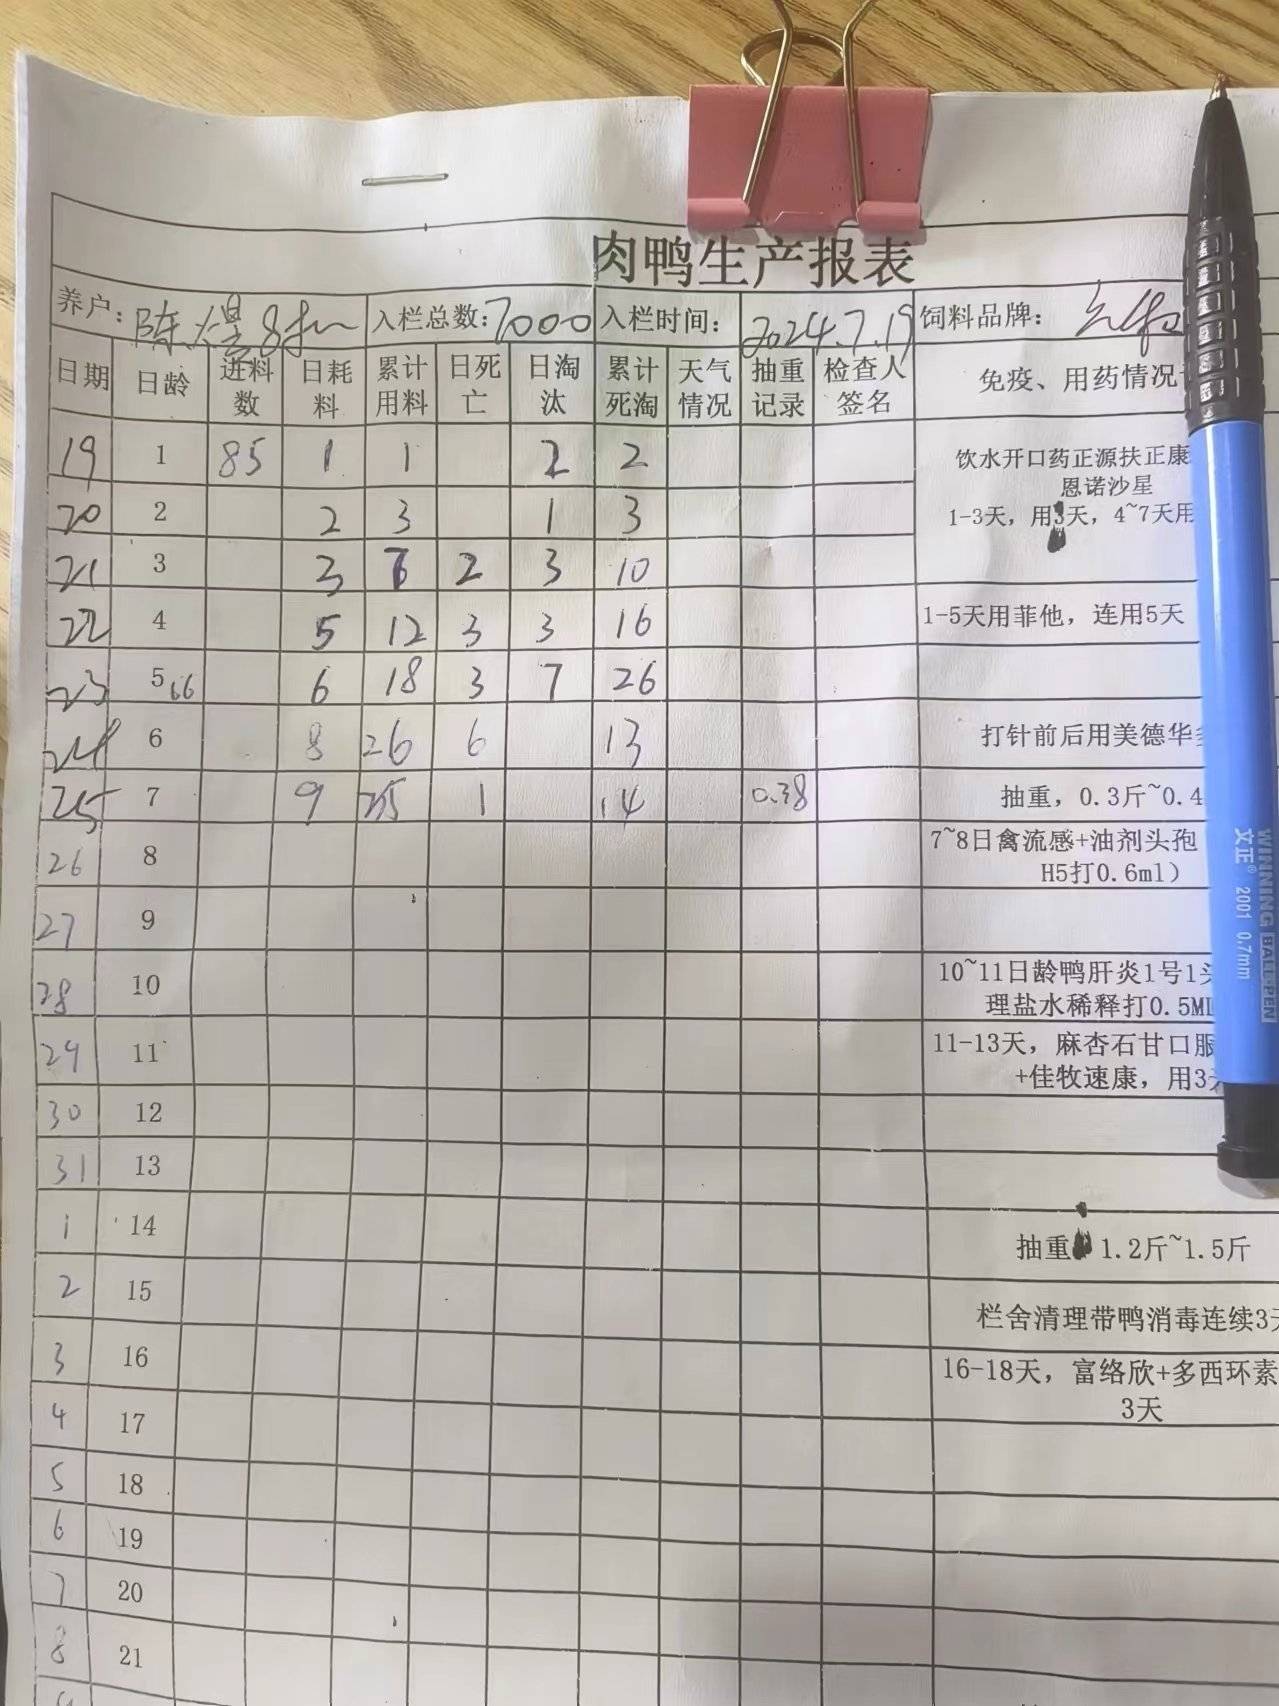 肉鸭生产报表
养户： 入栏总数： 7000 入栏时间： 2024.7.19 饲料品牌：
日期 日龄 进料数 日耗料 累计用料 日死亡 日淘汰 累计死淘 天气情况 抽重记录 检查人签名 免疫、用药情况
19 1 85 1 1 2 2 饮水开口药正源扶正康
恩诺沙星
20 2 2 3 1 3 1-3天，用3天，4~7天用
21 3 3 2 3 10
22 4 5 12 3 3 16 1-5天用菲他，连用5天
23 5 66 6 18 3 7 26
24 6 8 26 6 13 打针前后用美德华
25 7 9 35 1 14 0.38 抽重，0.3斤~0.4
26 8 7~8日禽流感+油剂头孢
H5打0.6ml）
27 9
28 10 10~11日龄鸭肝炎1号1
理盐水稀释打0.5ML
29 11 11-13天，麻杏石甘口服
+佳牧速康，用3
30 12
31 13
1 14 抽重 1.2斤~1.5斤
2 15 栏舍清理带鸭消毒连续3
3 16 16-18天，富络欣+多西环素
3天
4 17
5 18
6 19
7 20
8 21
WINNING BALL-PEN
文正® 2001 0.7mm